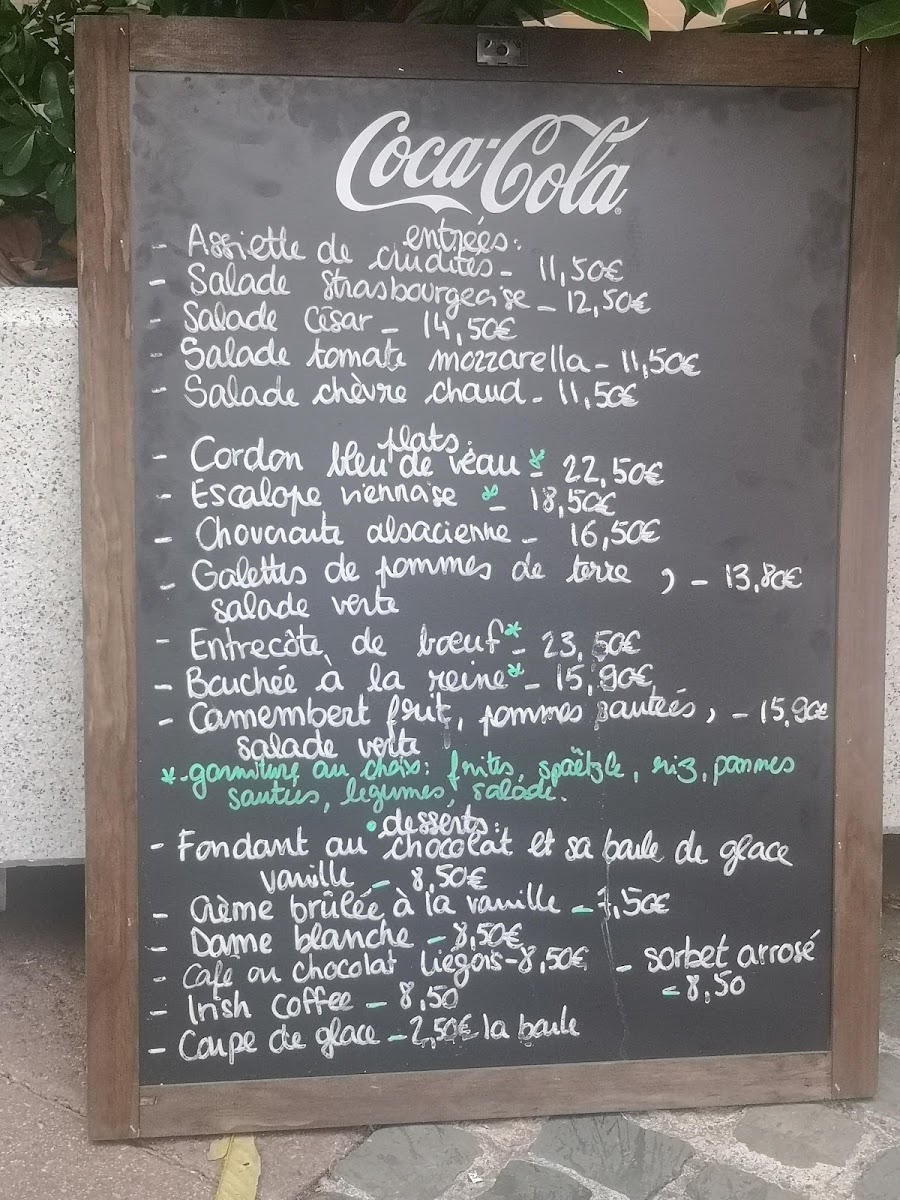 Coca-Cola
entrées:
- Assiette de crudités - 11,50€
- Salade strasbourgeoise - 12,50€
- Salade César - 14,50€
- Salade tomate mozzarella - 11,50€
- Salade chèvre chaud - 11,50€
plats:
- Cordon bleu de veau * - 22,50€
- Escalope viennoise * - 18,50€
- Choucroute alsacienne - 16,50€
- Galettes de pommes de terre , - 13,80€
salade verte
- Entrecôte de bœuf * - 23,50€
- Bouchée à la reine * - 15,90€
- Camembert frit, pommes sautées, - 15,90€
salade verte
*-garniture au choix: frites, spaëtzle, riz, pommes
sautées, légumes, salade.
• desserts:
- Fondant au chocolat et sa boule de glace
vanille - 8,50€
- Crème brûlée à la vanille - 7,50€
- Dame blanche - 8,50€
- Café ou chocolat liégois - 8,50€
- Irish Coffee - 8,50
- Coupe de glace - 2,50€ la boule
- sorbet arrosé
- 8,50